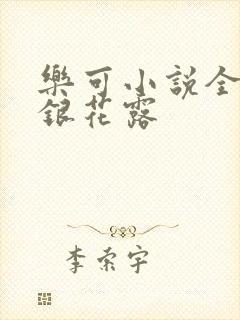 樂可小說全
銀花露
李索宇